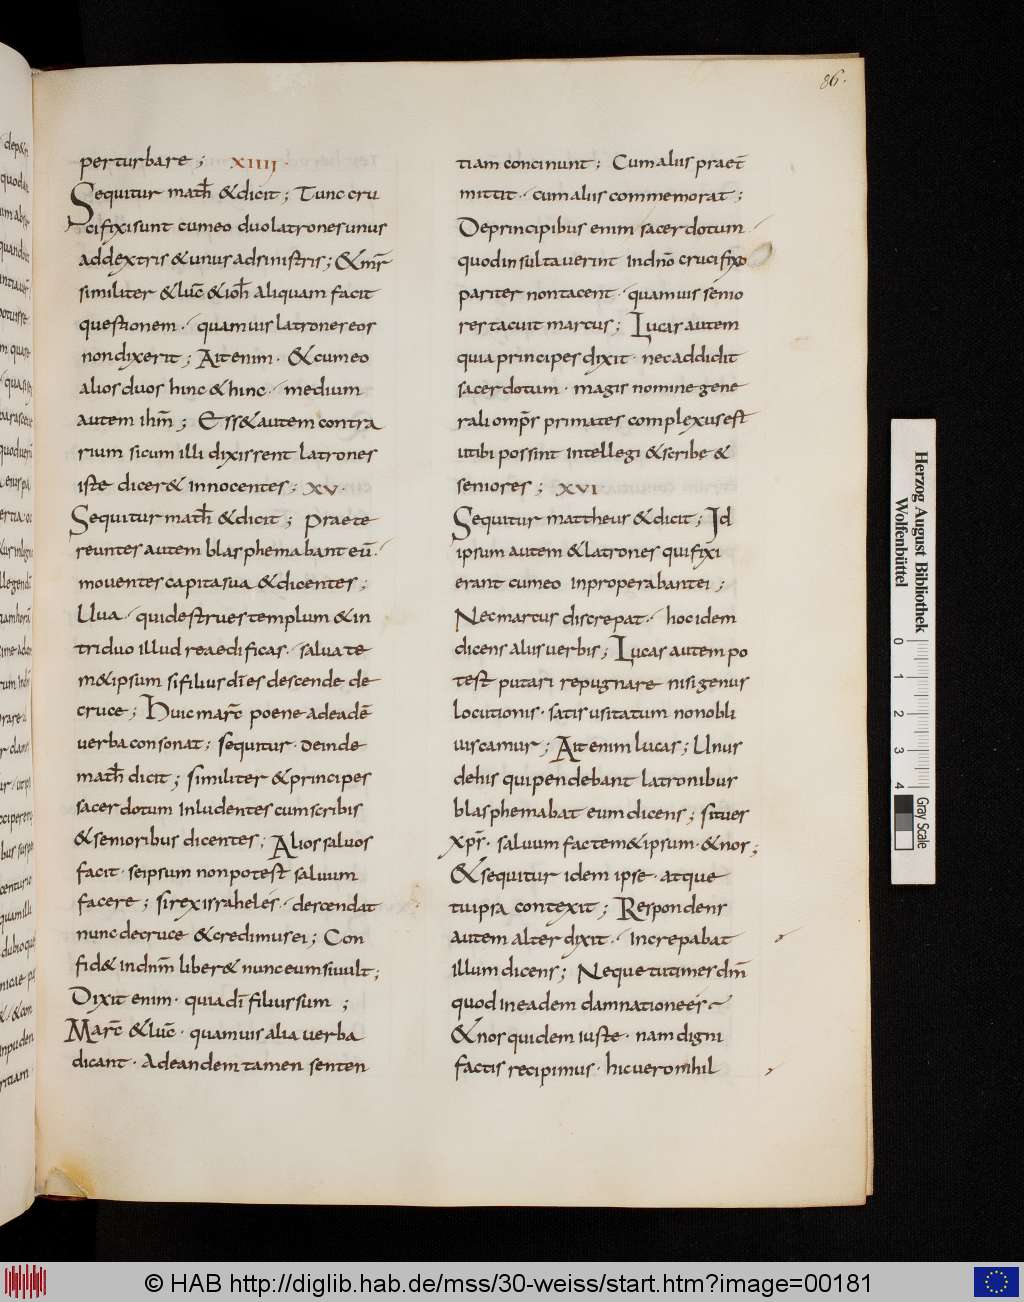 86.
perturbare ; XIIII ·
Sequitur math̅ & dicit ; Tunc cru
cifixi sunt cum eo duo latrones unus
ad dextris & unus ad sinistris ; & mr̅
similiter & luc̅ & ioh̅ aliquam facit
questionem · quamuis latrones eos
non dixerit ; Ait enim · & cum eo
alios duos hinc & hinc · medium
autem ihm̅ ; Ess& autem contra
rium si cum illi dixissent latrones
iste dicer& innocentes ; XV ·
Sequitur math̅ & dicit ; Praete
reuntes autem blasphemabant eū ·
mouentes capita sua & dicentes ;
Uua · qui destrues templum & in
triduo illud reaedificas · salua te
m& ipsum si filius di̅ es descende de
cruce ; Huic marc̅ poene adeadē
uerba consonat ; sequitur · deinde
math̅ dicit ; similiter & principes
sacerdotum inludentes cum scribis
& senioribus dicentes ; Alios saluos
facit · seipsum non potest saluum
facere ; si rex israhel es · descendat
nunc de cruce & credimus ei ; Con
fid& in dnm̅ liber& nunc eum si uult ;
Dixit enim · quia di̅ filius sum ;
Marc̅ & luc̅ · quamuis alia uerba
dicant · adeandem tamen senten
tiam concinunt ; Cum aliis praet̅
mittit · cum aliis commemorat ;
De principibus enim sacerdotum ·
quod insultauerint in dn̅o crucifixo
pariter non tacent · quamuis senio
res tacuit marcus ; Lucas autem
quia principes dixit · nec addidit
sacerdotum · magis nomine gene
rali omp̅s primates complexus est
ut ibi possint intellegi & scribe &
seniores ; XVI
Sequitur mattheus & dicit ; Id
ipsum autem & latrones qui fixi
erant cum eo inproperabant ei ;
Nec marcus discrepat · hoc idem
dicens aliis uerbis ; Lucas autem po
test putari repugnare nisi genus
locutionis · satis usitatum non obli
uiscamur ; Ait enim lucas ; Unus
de his qui pendebant latronibus
blasphemabat eum dicens ; si tu es
xpr̅ · saluum fac temet ipsum · & nos ;
& sequitur idem ipse · atque
tuipsa contexit ; Respondens
autem alter dixit · increpabat
illum dicens ; Neque tu times dm̅
quod in eadem damnatione es
& nos quidem iuste · nam digni
factis recipimus · hic uero nihil
Herzog August Bibliothek
Wolfenbüttel
0 1 2 3 4
Gray Scale
© HAB http://diglib.hab.de/mss/30-weiss/start.htm?image=00181